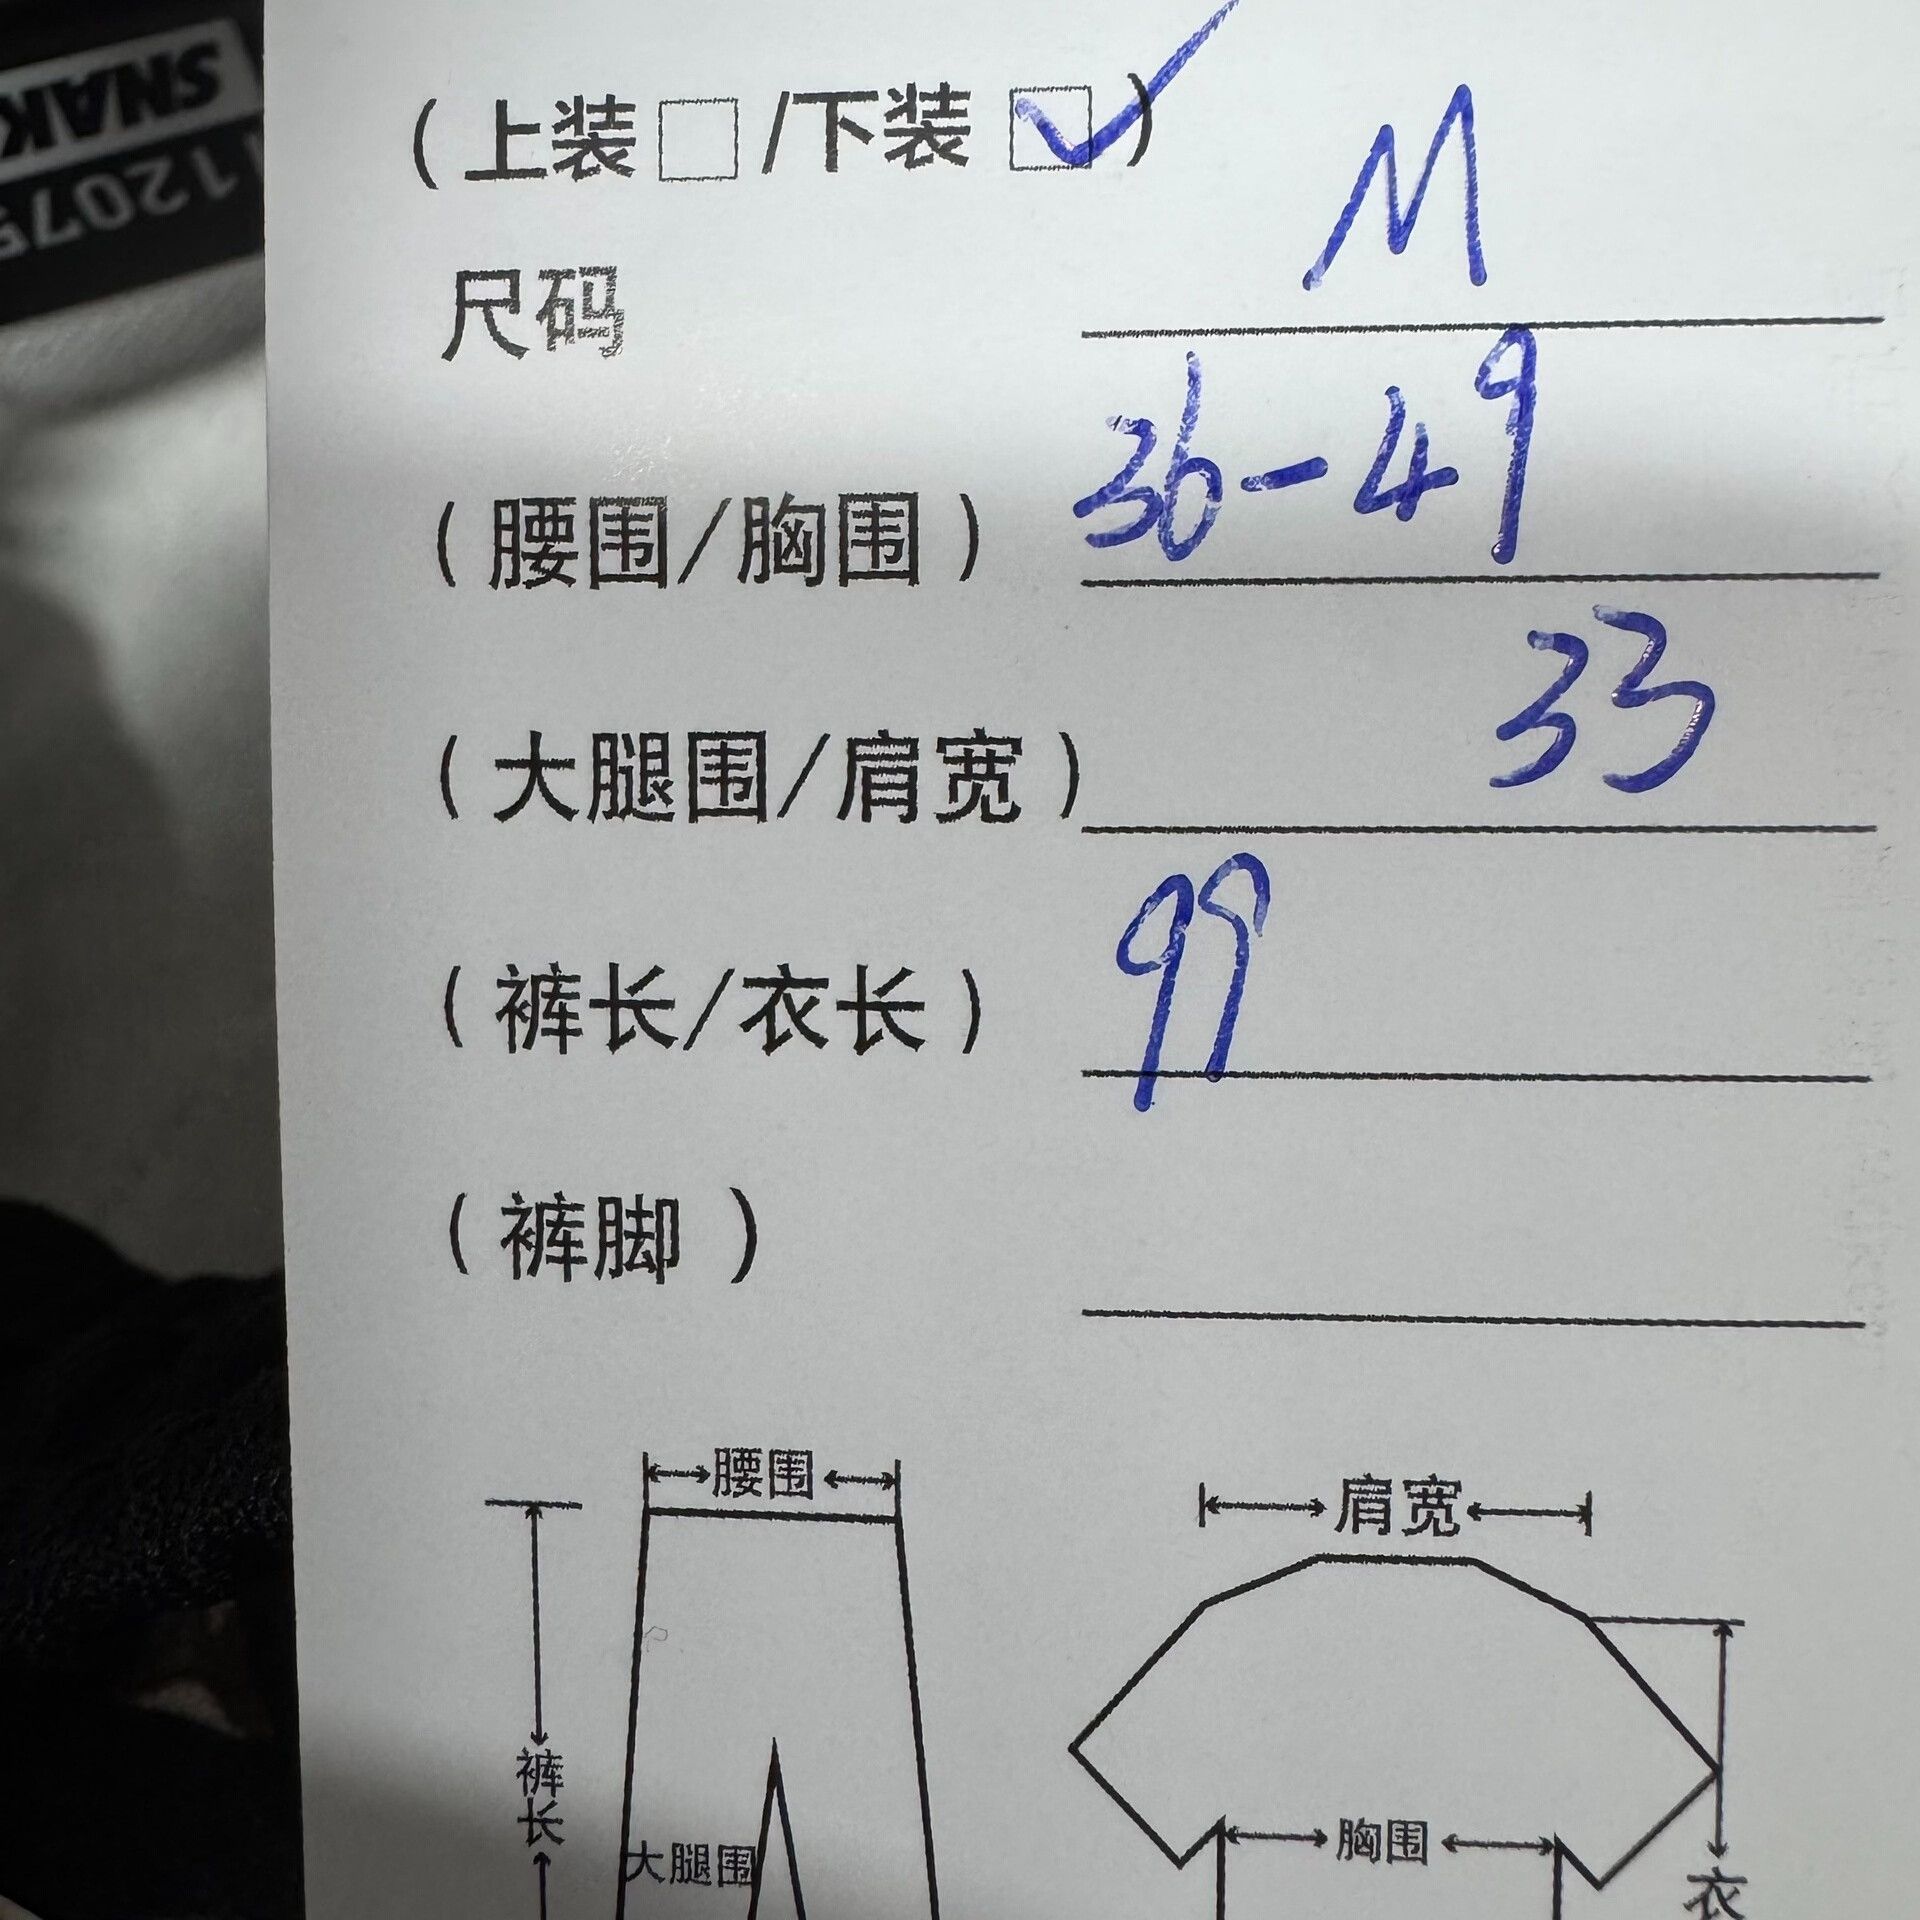 SNAK
12075
(上装□/下装☑)
尺码 M
(腰围/胸围) 36-49
(大腿围/肩宽) 33
(裤长/衣长) 99
(裤脚)
腰围
肩宽
裤长
大腿围
胸围
衣